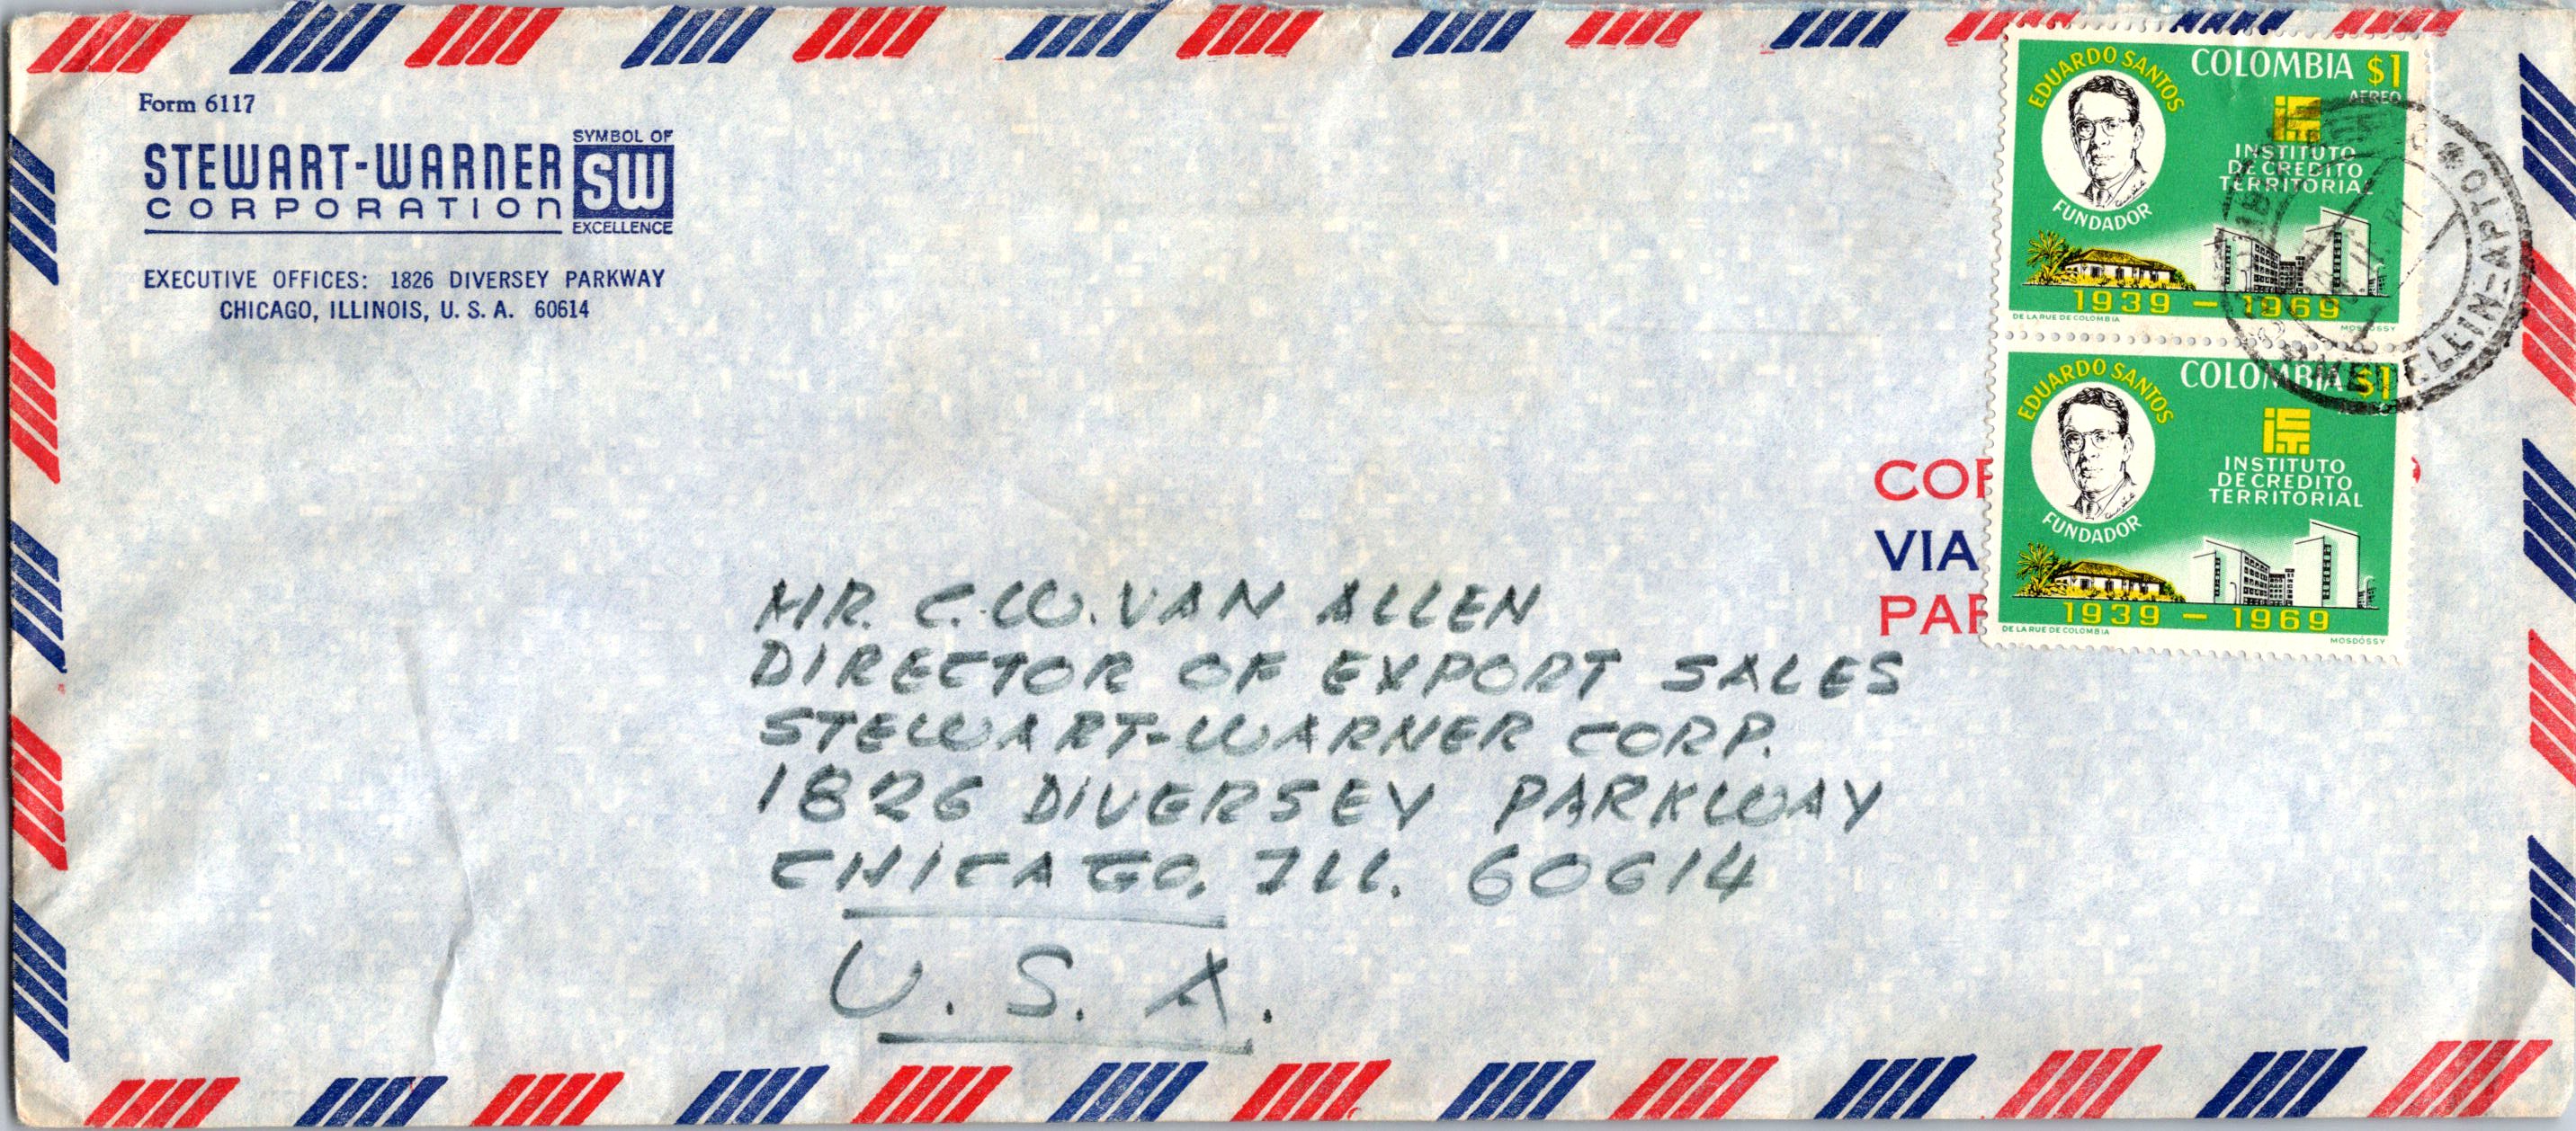 Form 6117
STEWART-WARNER
CORPORATION
SYMBOL OF
SW
EXCELLENCE
EXECUTIVE OFFICES: 1826 DIVERSEY PARKWAY
CHICAGO, ILLINOIS, U. S. A. 60614
EDUARDO SANTOS
FUNDADOR
COLOMBIA $1
AEREO
INSTITUTO
DE CREDITO
TERRITORIAL
1939 - 1969
DE LA RUE DE COLOMBIA
MOSDOSSY
MEDELLIN-APTIO
EDUARDO SANTOS
FUNDADOR
COLOMBIA $1
INSTITUTO
DE CREDITO
TERRITORIAL
1939 - 1969
DE LA RUE DE COLOMBIA
MOSDOSSY
VIA
MR. C.W. VAN ALLEN
DIRECTOR OF EXPORT SALES
STEWART-WARNER CORP.
1826 DIVERSEY PARKWAY
CHICAGO, ILL. 60614
U. S. A.